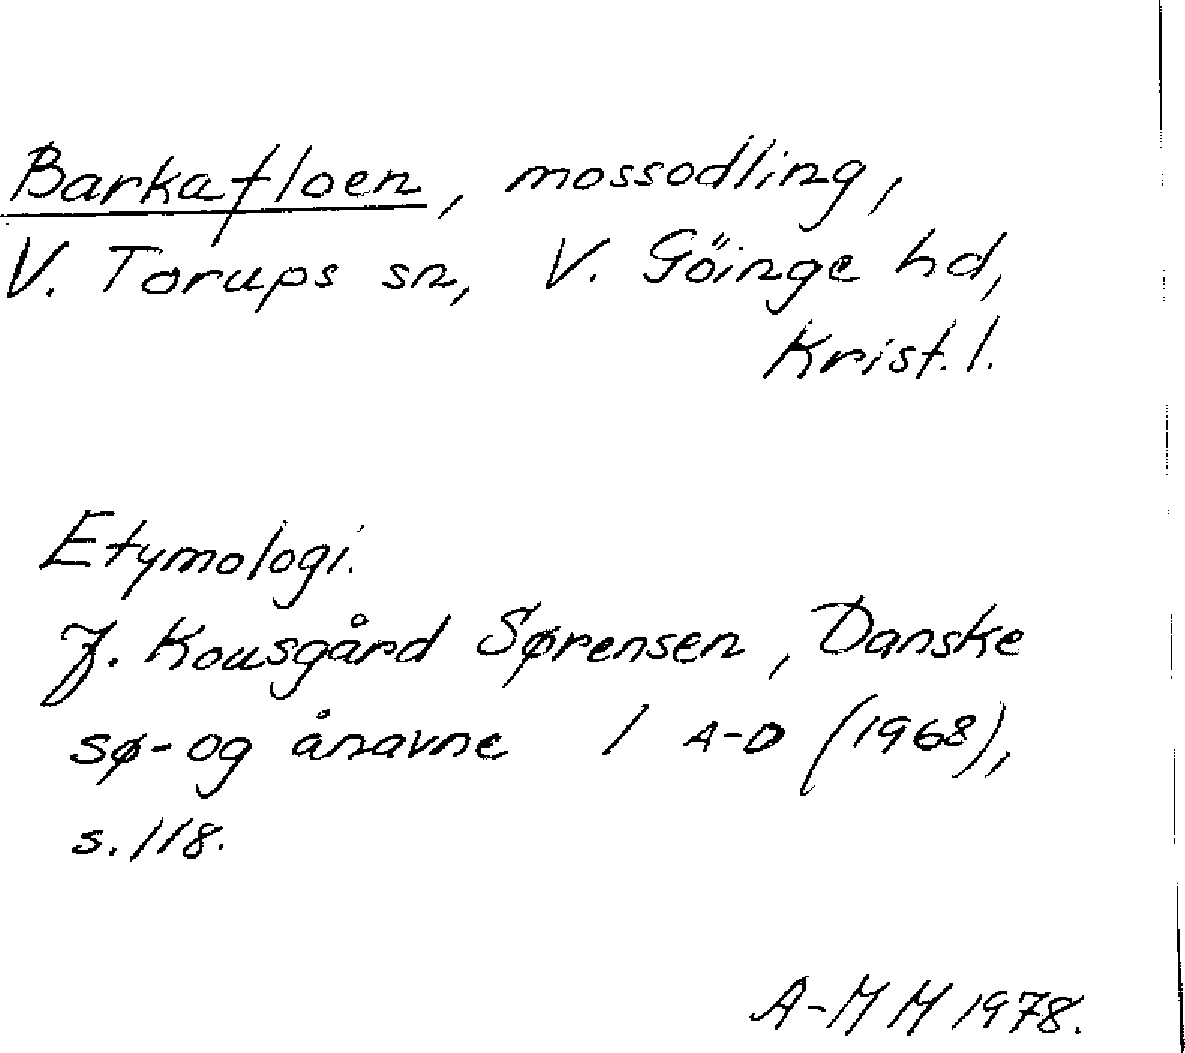 Barkafloen, mossodling,
V. Torups sn, V. Göinge hd,
Krist. l.
Etymologi.
J. Kousgård Sørensen, Danske
sø- og ånavne 1 A-D (1968),
s. 118.
A-M M 1978.